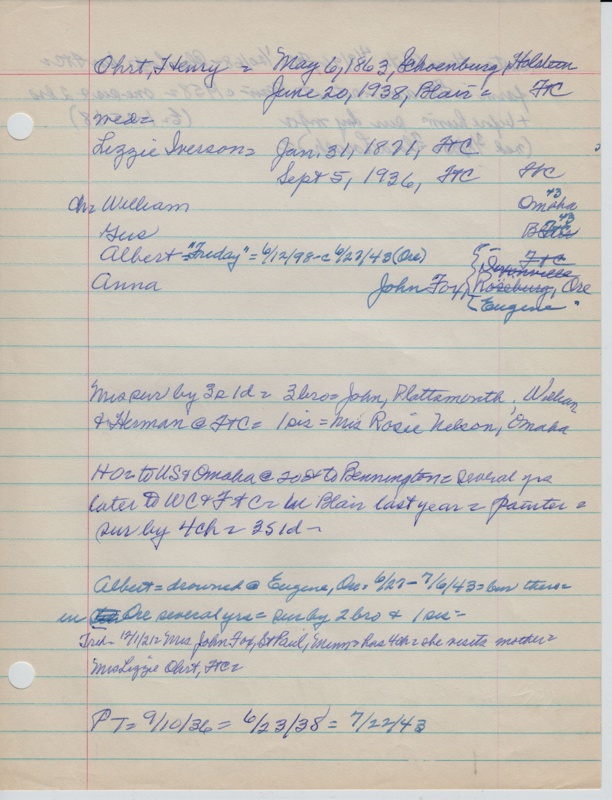 Ohrt, Henry = May 6, 1863, Schoenburg, Holstein
June 20, 1938, Blair = FtC
med=
Lizzie Iverson = Jan. 31, 1871, FtC
Sept 5, 1936, FtC FtC
Ch= William Omaha 43
Gus 43
Albert = "Friday" = 6/12/98-c 6/27/43 (Ore) FtC
Anna John Fox, Roseburg, Ore
Eugene
Mrs sur by 3s 1d = 3 bro = John, Plattsmouth, William
& Herman @ FtC = 1 sis = Mrs Rosie Nelson, Omaha
HO= to US & Omaha @ 20 = to Bennington = several yrs
later to WC & FtC = in Blair last year = painter =
sur by 4 ch = 3S 1d =
Albert = drowned @ Eugene, Ore = 6/27 - 7/6/43 = bur there =
in Ore several yrs = sur by 2 bro & 1 sis =
Trib- 12/1/21 = Mrs John Fox, St Paul, Minn = has 4ch = she visits mother =
Mrs Lizzie Ohrt, FtC =
PT = 9/10/36 = 6/23/38 = 7/22/43